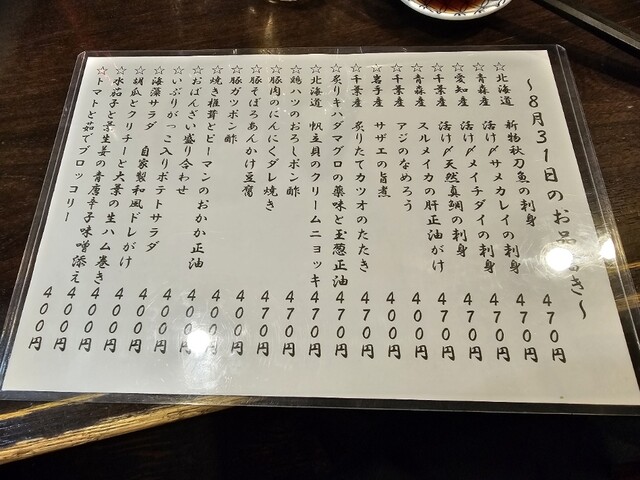 ～8月31日のお品書き～
☆北海道 新物秋刀魚の刺身 470円
☆青森産 活け〆サメカレイの刺身 470円
☆愛知産 活け〆メイチダイの刺身 470円
☆千葉産 活け〆天然真鯛の刺身 470円
☆青森産 スルメイカの肝正油がけ 470円
☆千葉産 アジのなめろう 400円
☆岩手産 サザエの旨煮 400円
☆千葉産 炙りたてカツオのたたき 470円
☆炙りキハダマグロの薬味と玉葱正油 470円
☆北海道 帆立貝のクリームニョッキ 470円
☆鶏ハツのおろしポン酢 470円
☆豚肉のにんにくダレ焼き 470円
☆豚そぼろあんかけ豆腐 400円
☆豚ガツポン酢 400円
☆焼き椎茸とピーマンのおかか正油 400円
☆おばんざい盛り合わせ 400円
☆いぶりがっこ入りポテトサラダ 400円
☆海藻サラダ 自家製和風ドレがけ 400円
☆胡瓜とクリチーと大葉の生ハム巻き 400円
☆水茄子と葉生姜の青唐辛子味噌添え 400円
☆トマトと茹でブロッコリー 400円